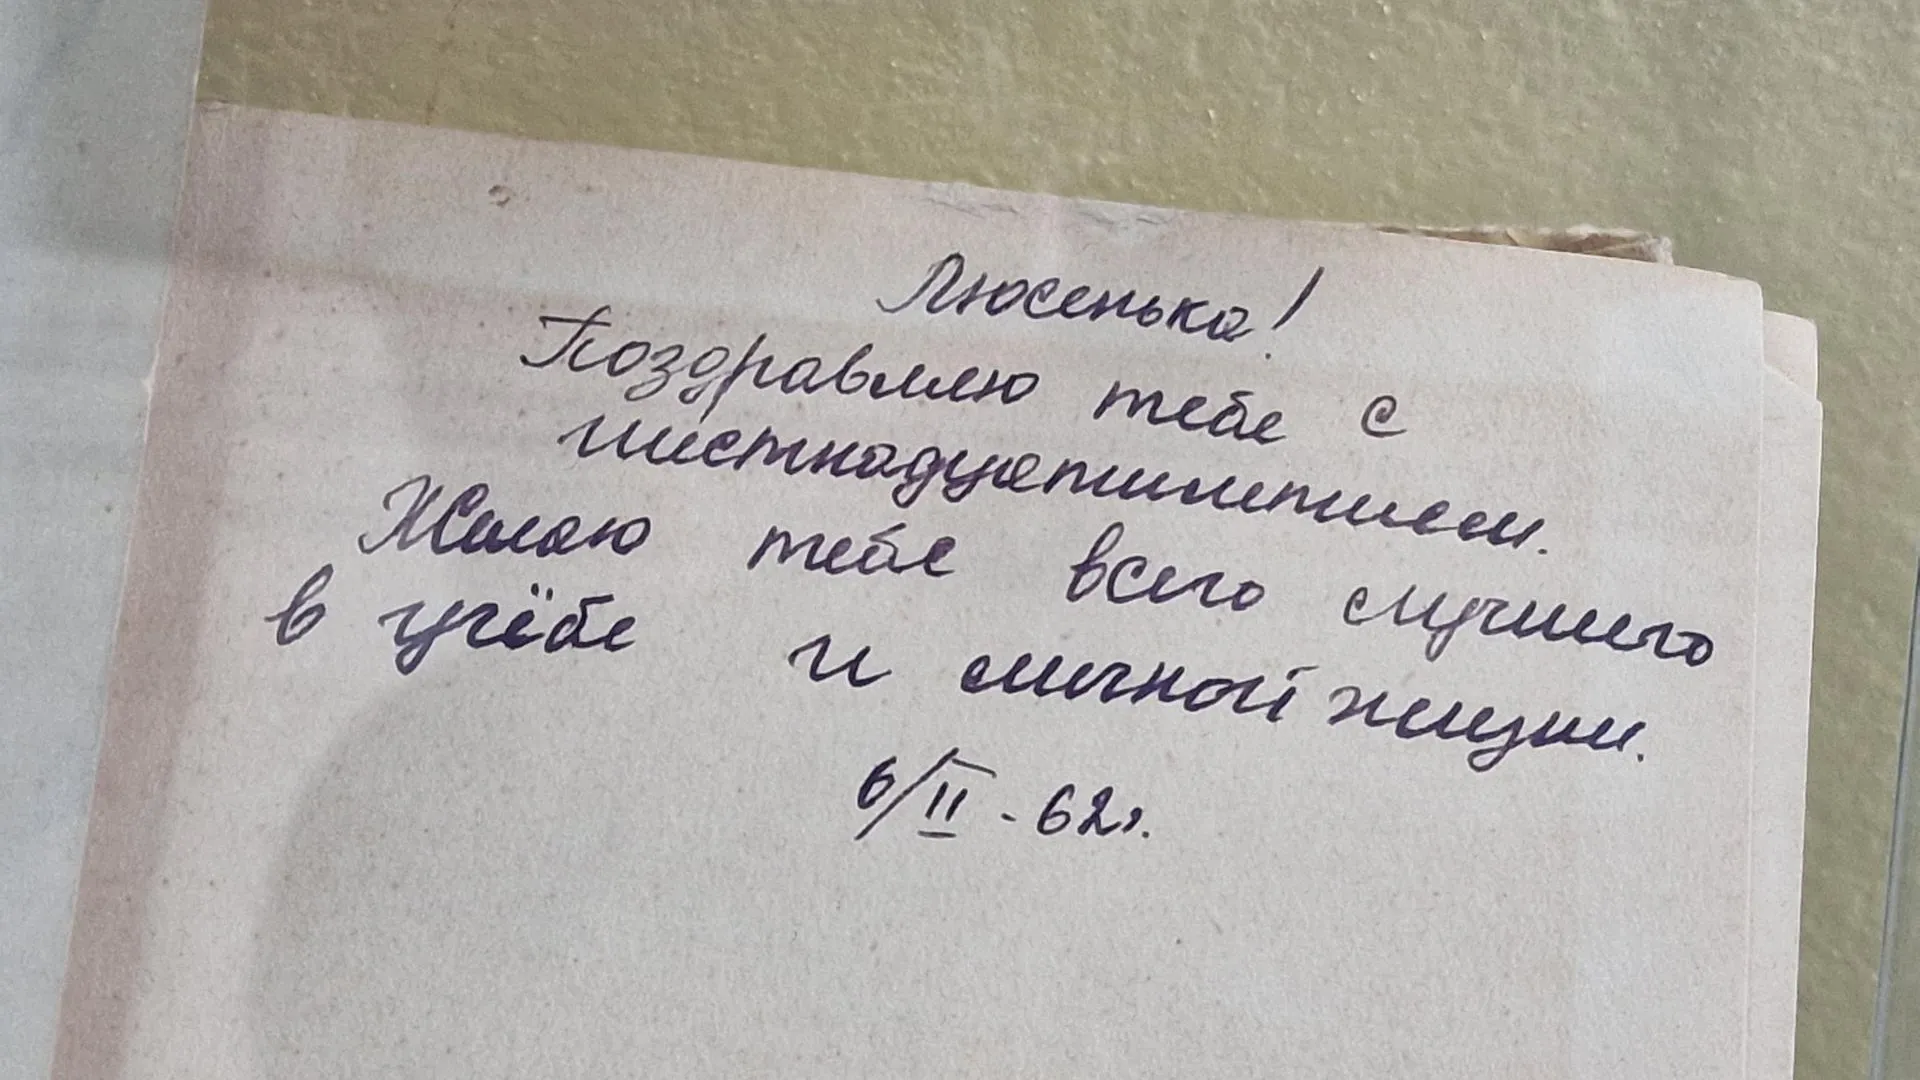 Люсенька!
Поздравляю тебе с
шестнадцатилетием.
Желаю тебе всего лучшего
в учёбе и личной жизни.
6/II - 62г.